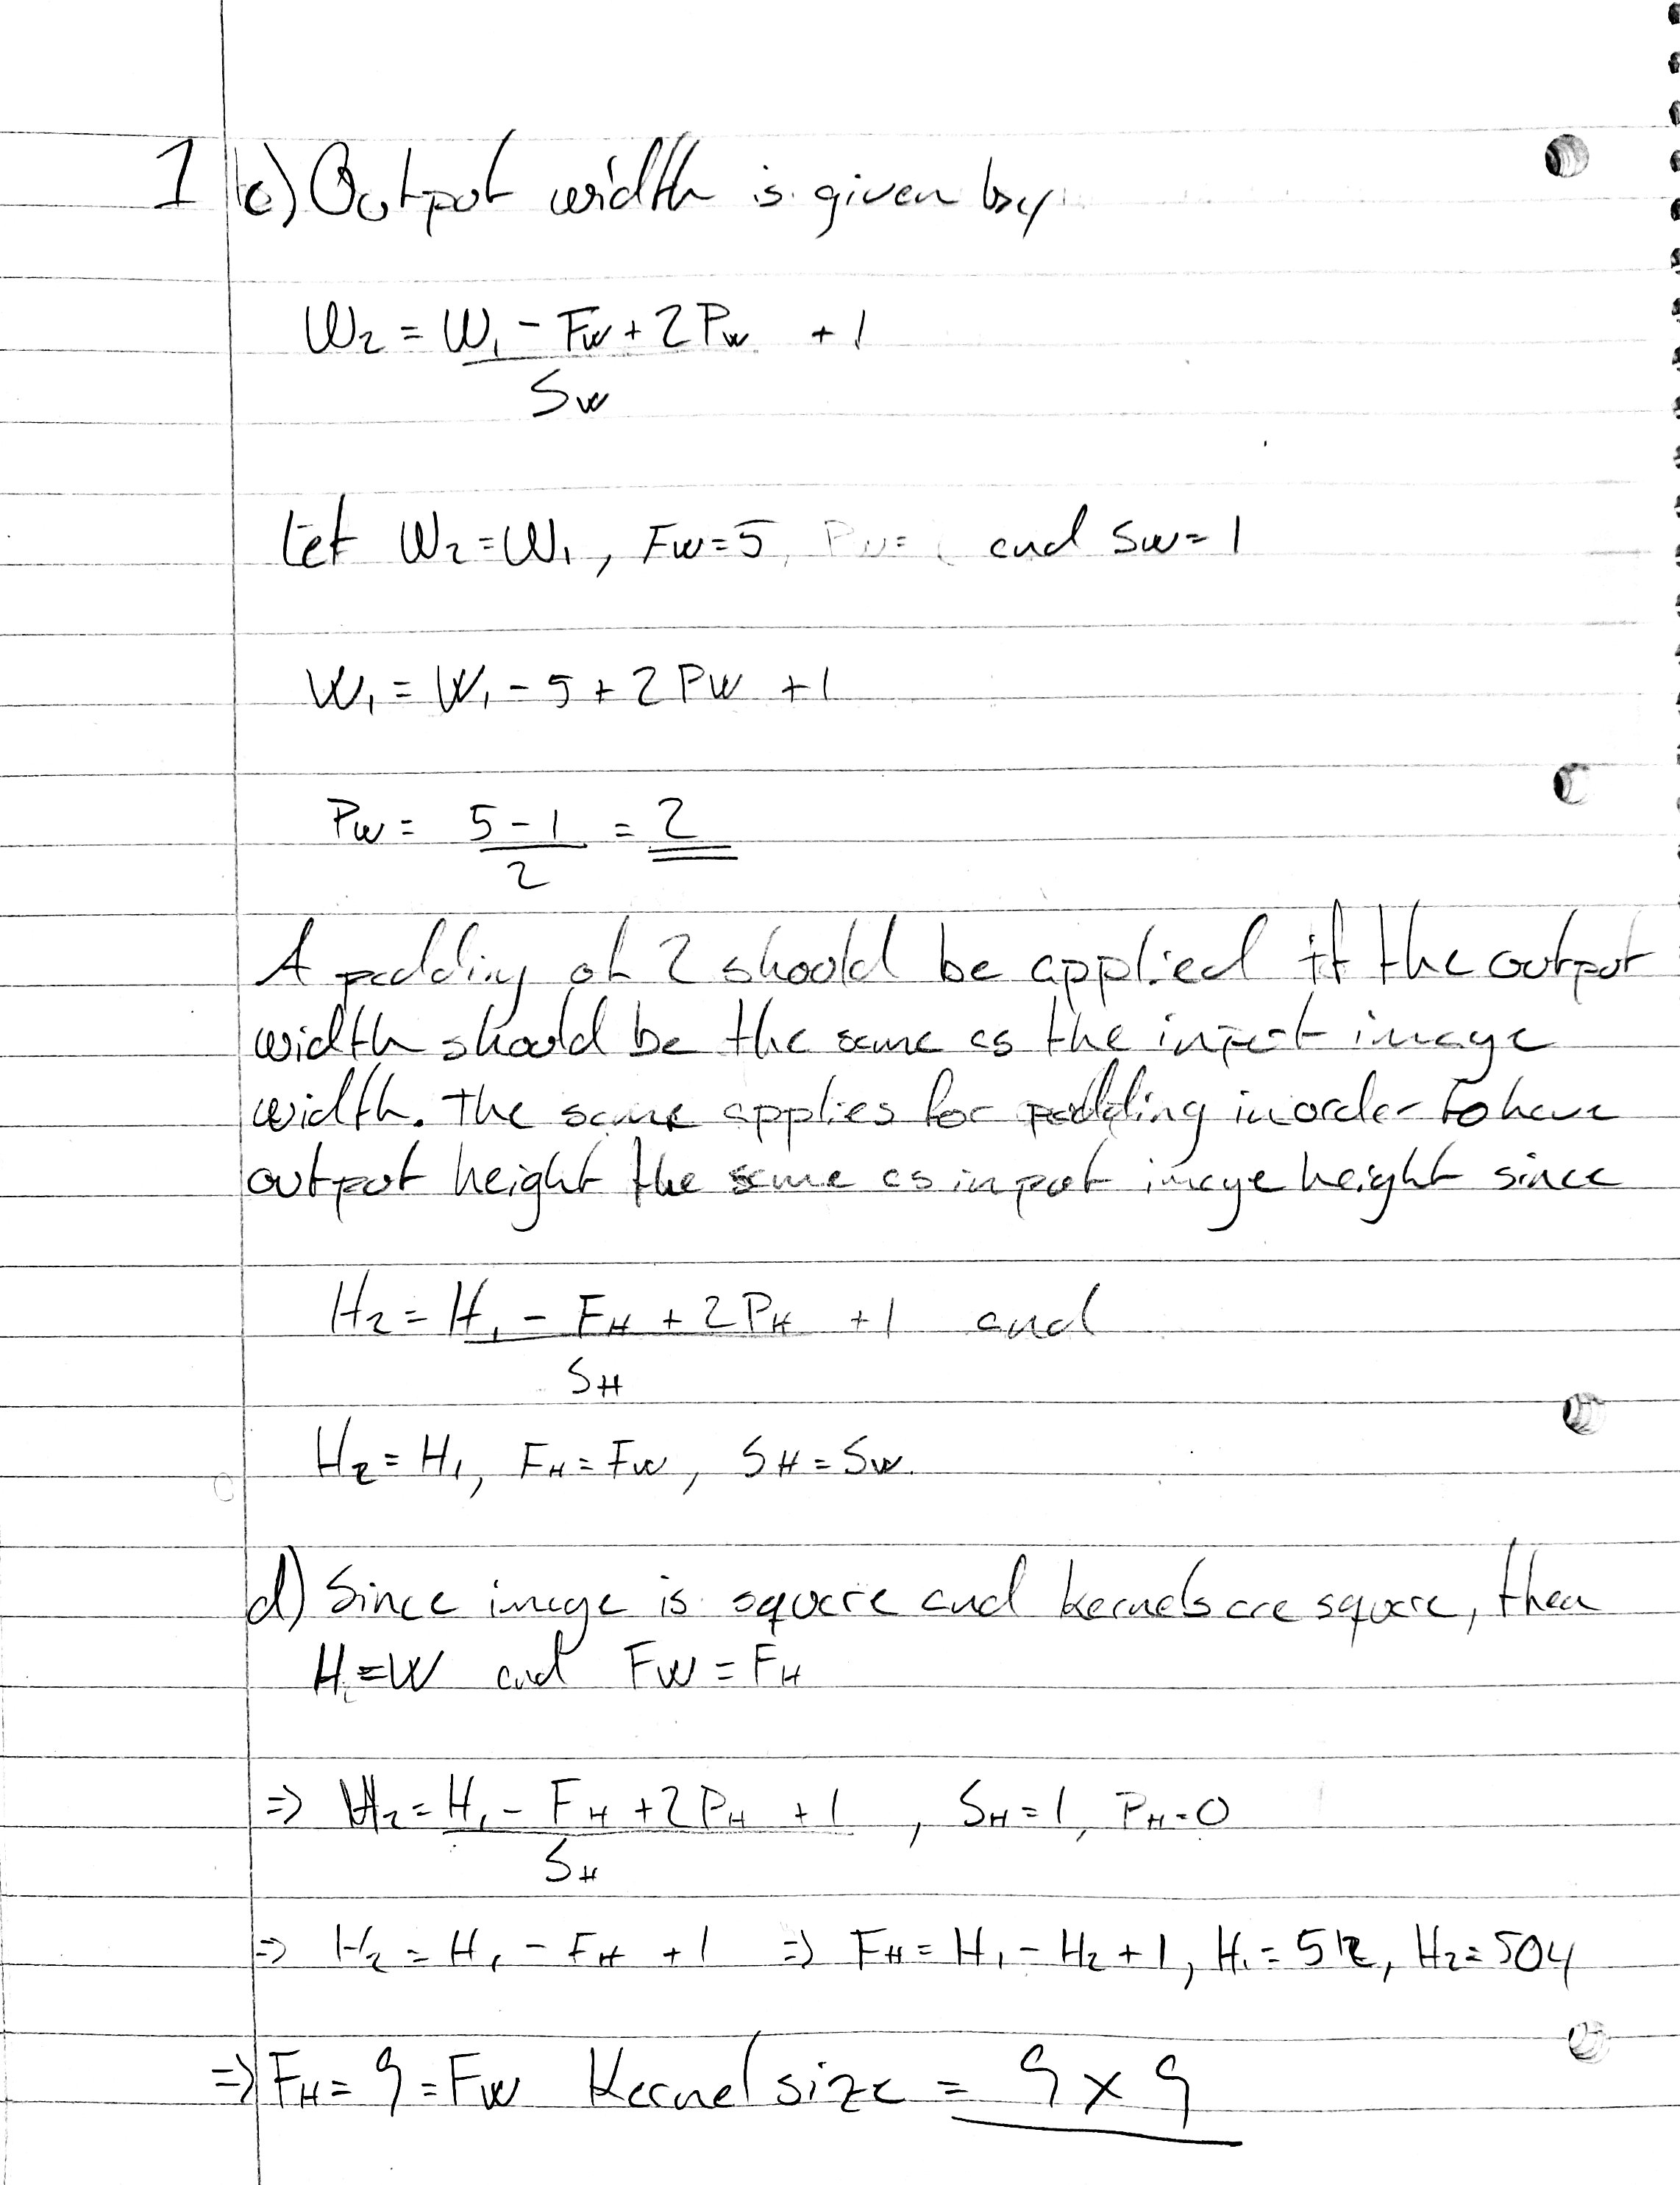 1 c) Output width is given by
W₂ = W₁ - Fw + 2Pw + 1
Sw
Let W₂ = W₁, Fw = 5, and Sw = 1
W₁ = W₁ - 5 + 2PW + 1
Pw = 5 - 1 = 2
2
A padding of 2 should be applied if the output
width should be the same as the input image
width. The same applies for padding in order to have
output height the same as input image height since
H₂ = H₁ - FH + 2PH + 1 and
SH
H₂ = H₁, FH = Fw, SH = Sw.
d) Since image is square and kernels are square, then
H₁ = W and FW = FH
⇒ H₂ = H₁ - FH + 2PH + 1 , SH = 1, PH = 0
SH
⇒ H₂ = H₁ - FH + 1 ⇒ FH = H₁ - H₂ + 1, H₁ = 512, H₂ = 504
⇒ FH = 9 = FW Kernel size = 9 x 9